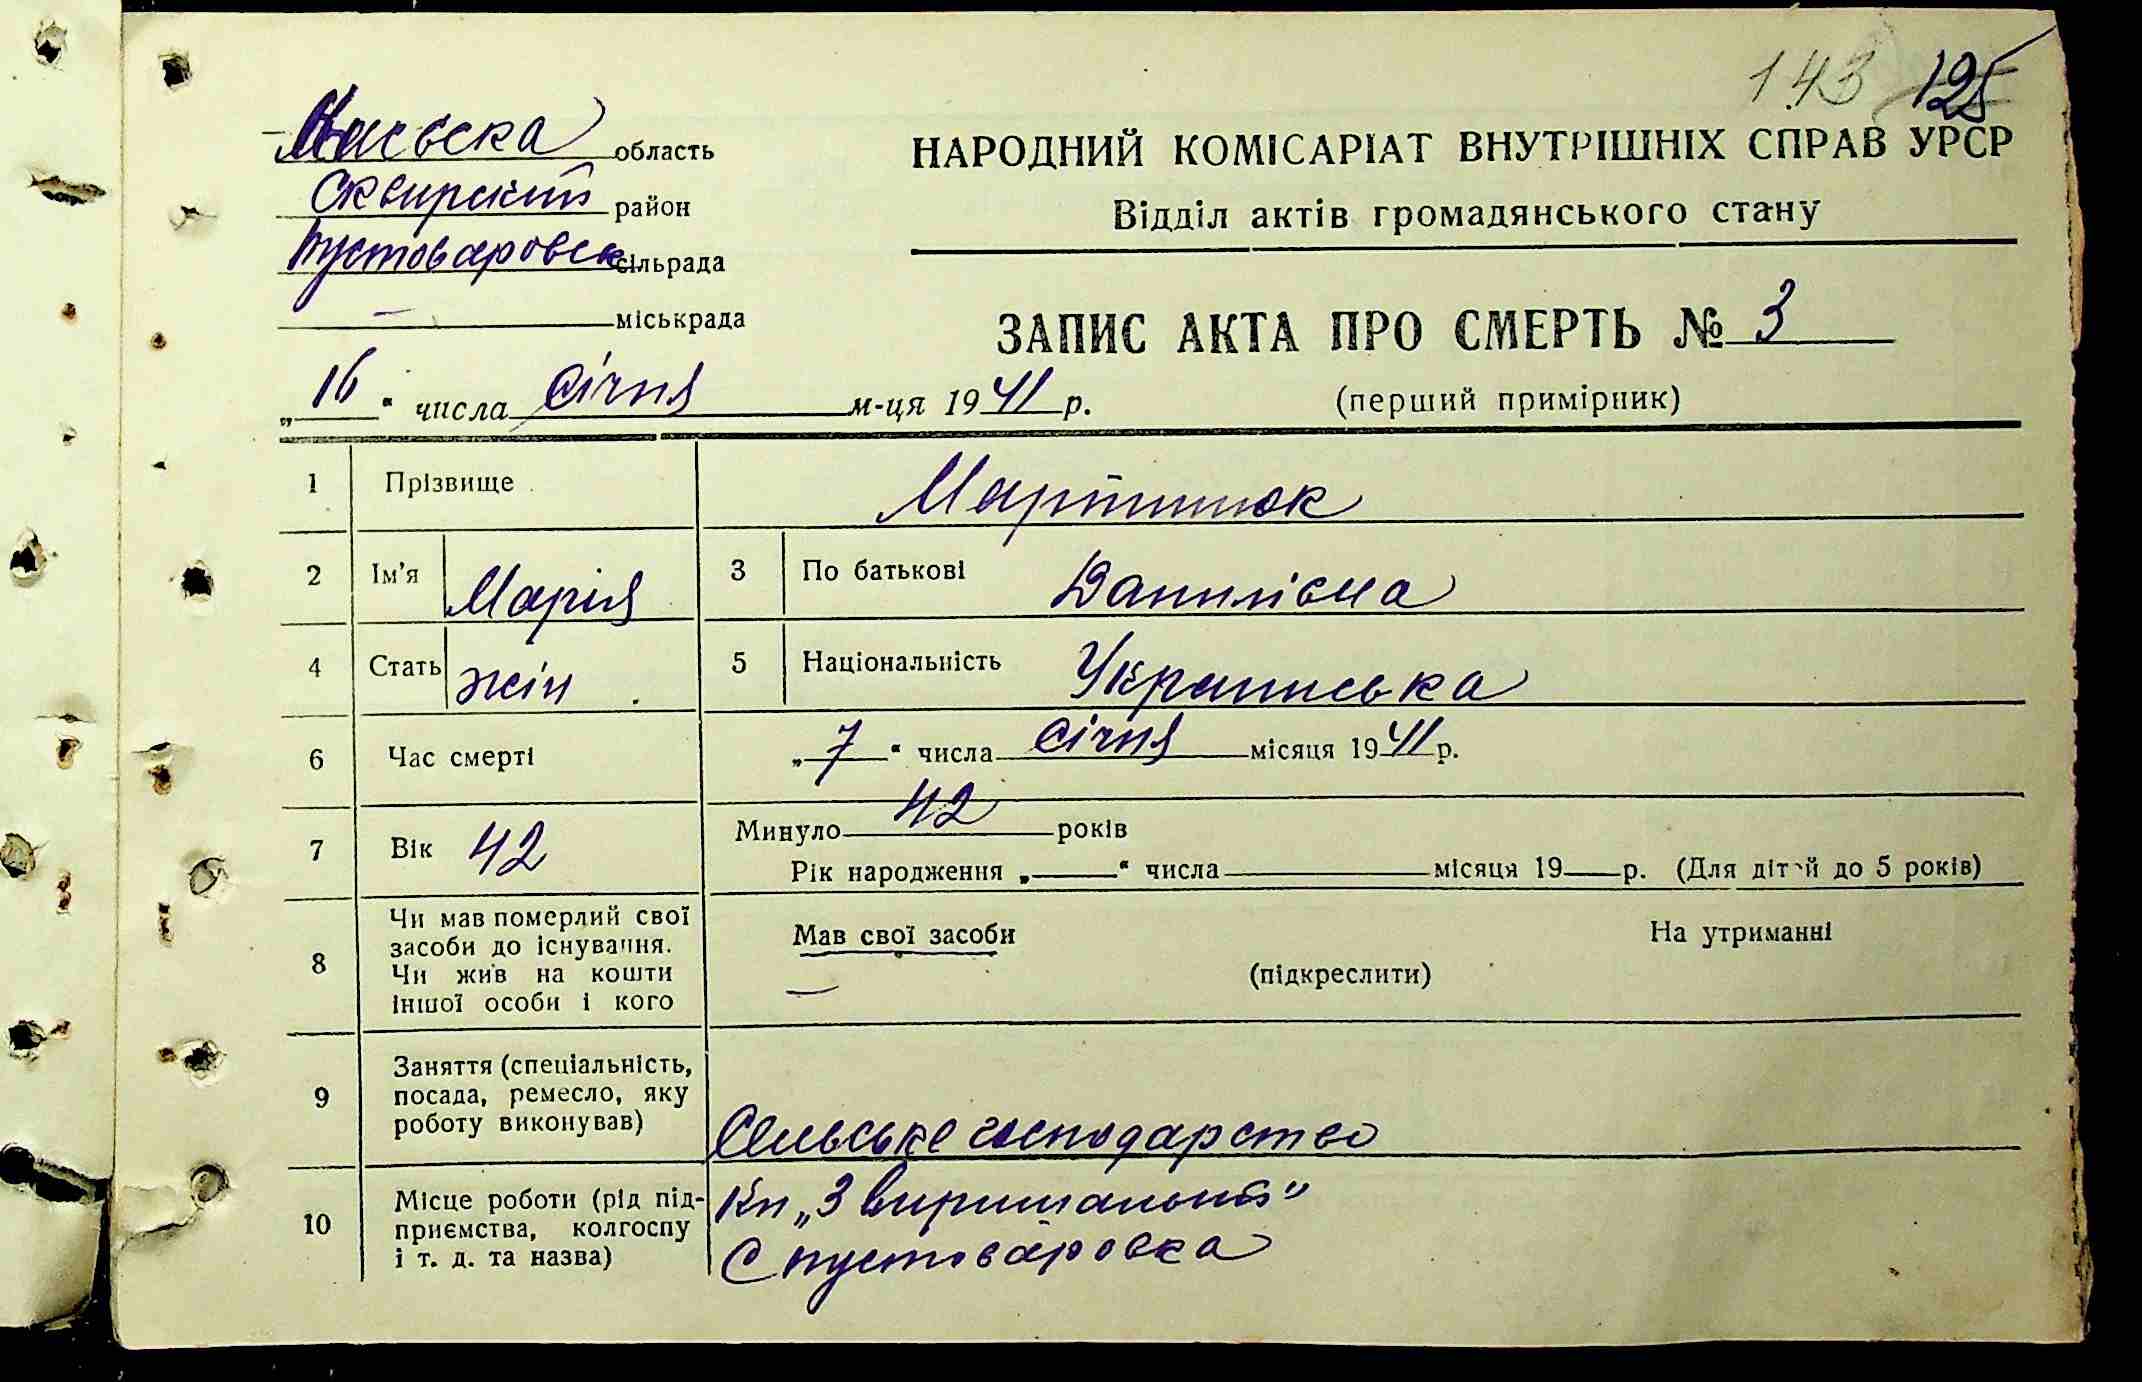 143 125
Київська область
Сквирский район
Пустоваровск сільрада
— міськрада
НАРОДНИЙ КОМІСАРІАТ ВНУТРІШНІХ СПРАВ УРСР
Відділ актів громадянського стану
ЗАПИС АКТА ПРО СМЕРТЬ № 3
(перший примірник)
„16“ числа січня м-ця 1941 р.
1 Прізвище Мартинюк
2 Ім'я Марія 3 По батькові Данилівна
4 Стать жін. 5 Національність Українська
6 Час смерті „7“ числа січня місяця 1941 р.
7 Вік 42 Минуло 42 років
Рік народження „ “ числа місяця 19 р. (Для дітей до 5 років)
8 Чи мав померлий свої
засоби до існування.
Чи жив на кошти
іншої особи і кого
Мав свої засоби На утриманні
(підкреслити)
—
9 Заняття (спеціальність,
посада, ремесло, яку
роботу виконував)
Сельське господарство
10 Місце роботи (рід під-
приємства, колгоспу
і т. д. та назва)
Кп „3 виришальний“
С Пустоваровка